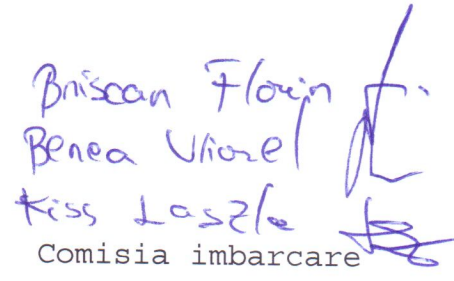 Briscan Florin
Benea Viorel
Kiss Laszlo
Comisia imbarcare